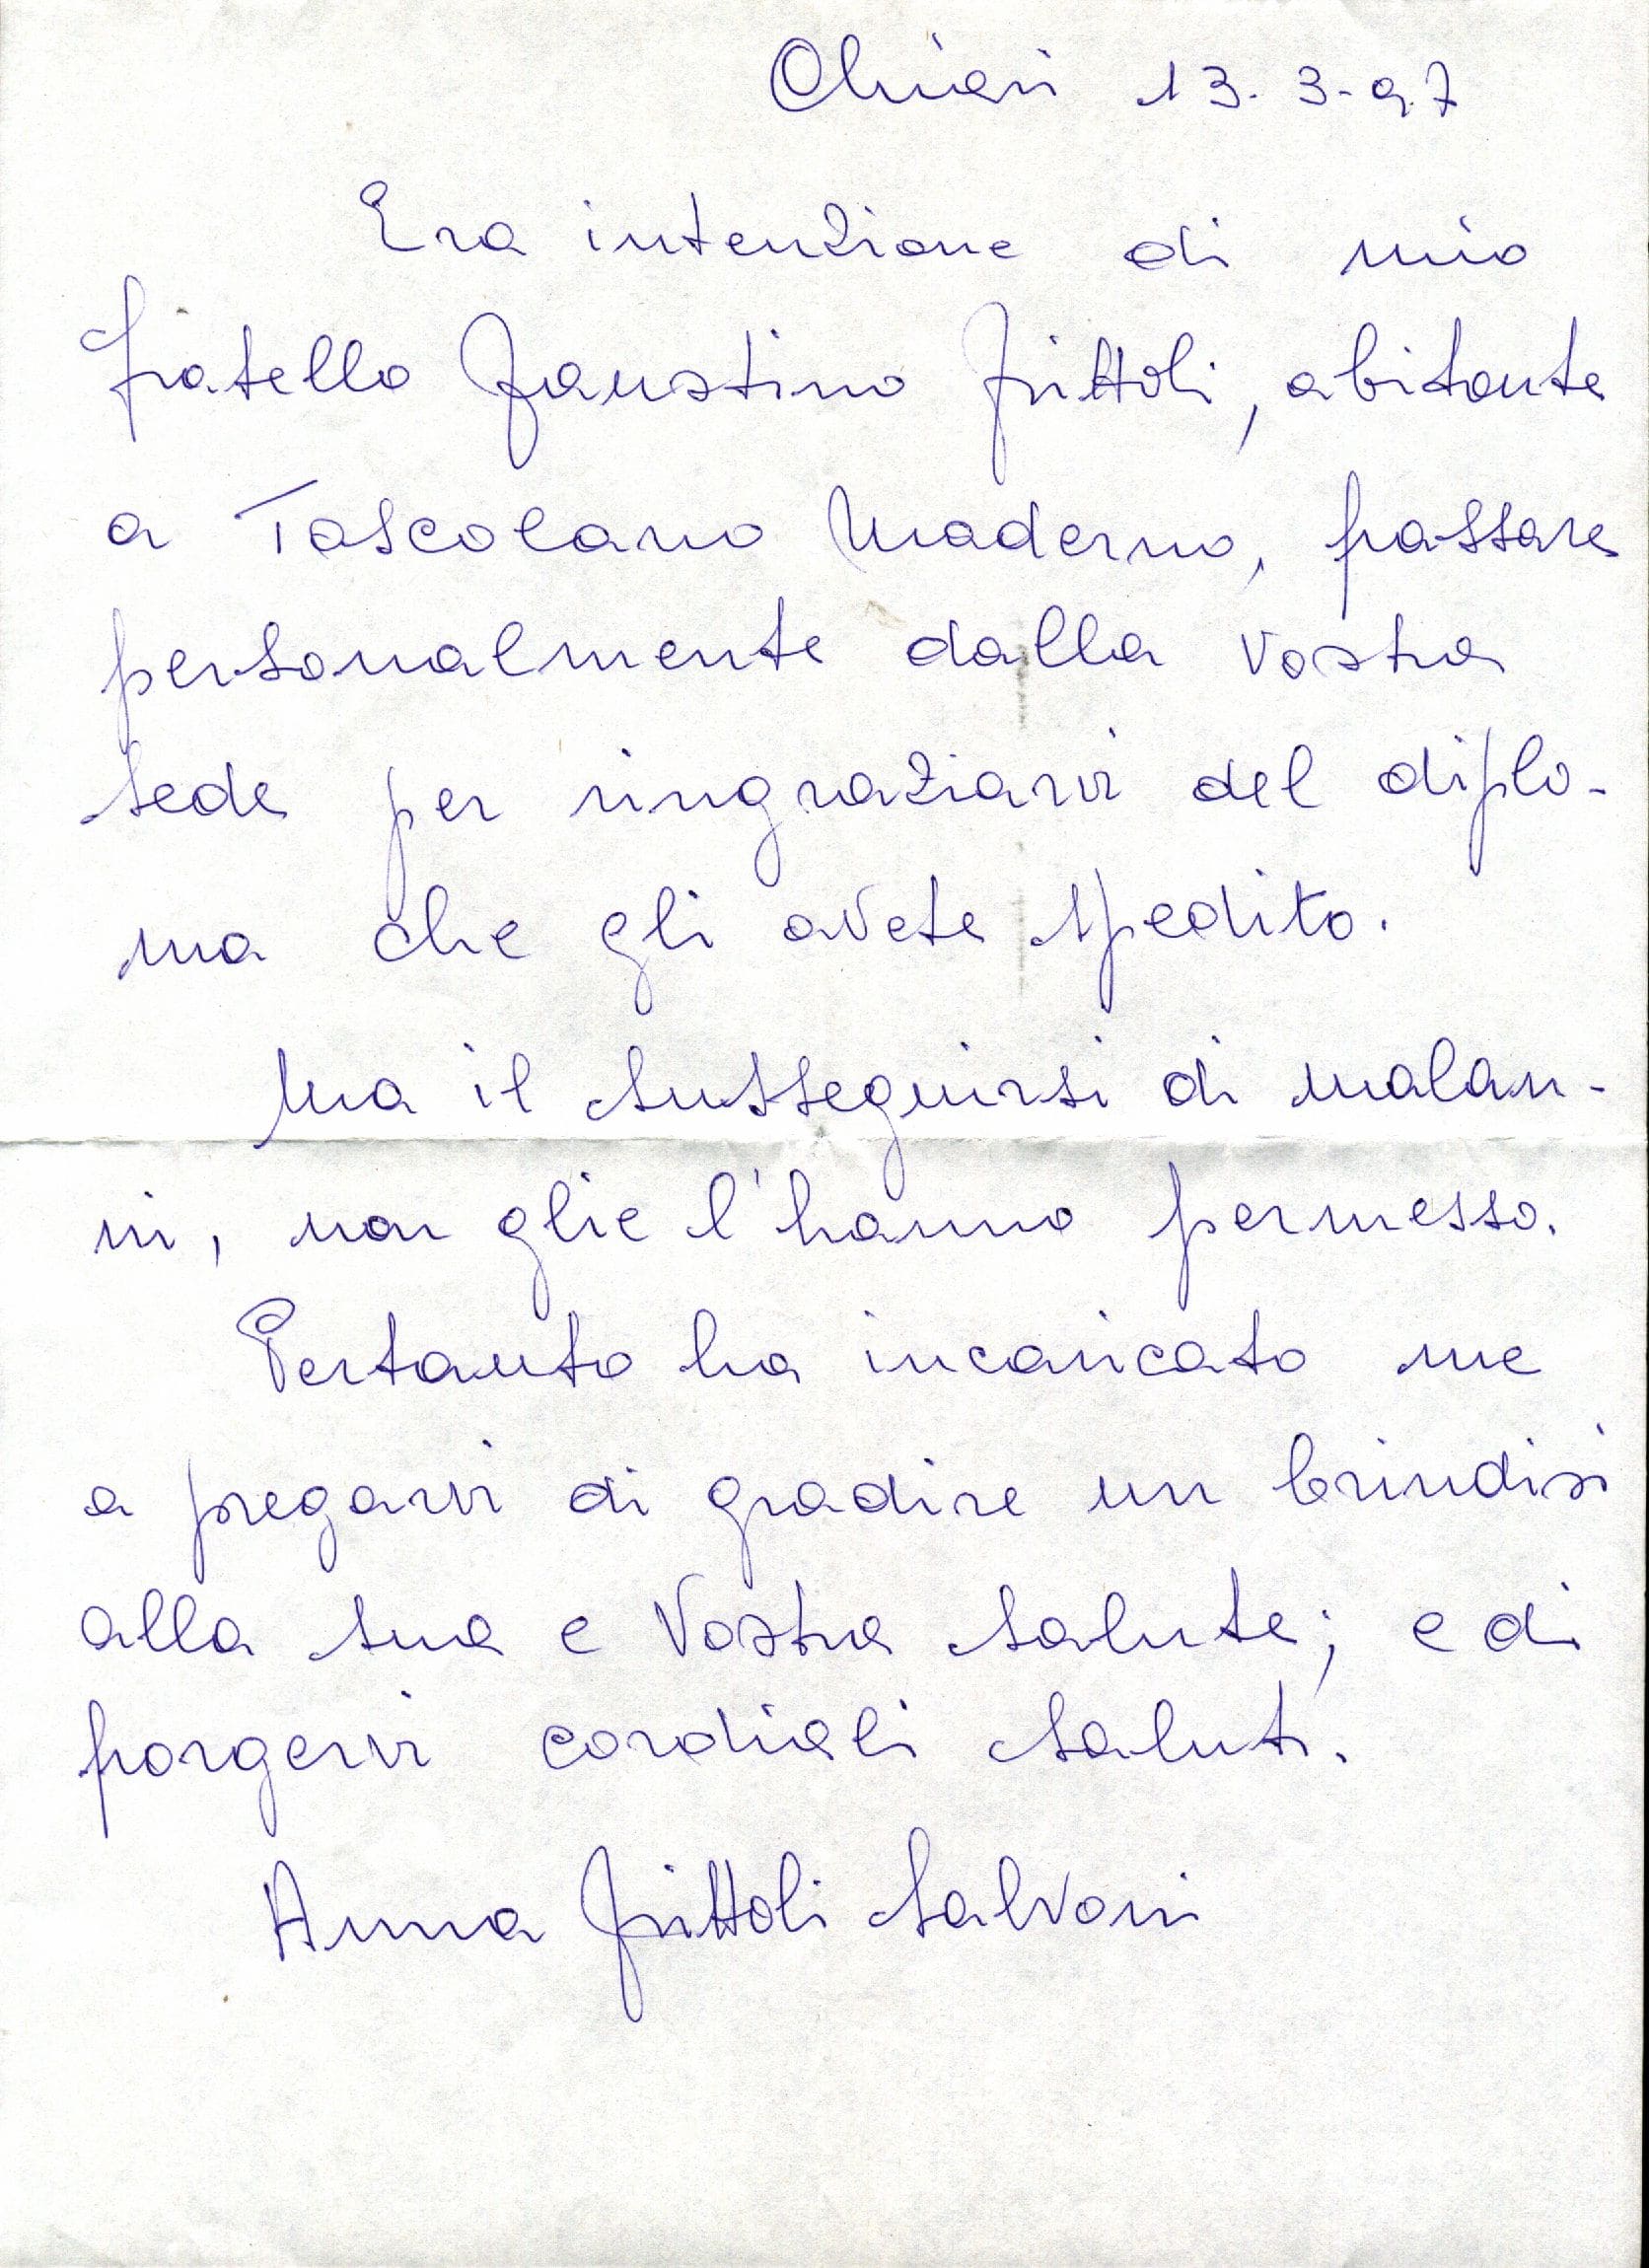 Chiari 13.3-97
Era intenzione di mio
fratello Faustino Frittoli, abitante
a Toscolano Maderno, passare
personalmente dalla Vostra
sede per ringraziarvi del diplo-
ma che gli avete spedito.
Ma il susseguirsi di malan-
ni, non glie l'hanno permesso.
Pertanto ha incaricato me
a pregarvi di gradire un brindisi
alla sua e Vostra salute; e di
porgervi cordiali saluti.
Anna Frittoli Salvoni